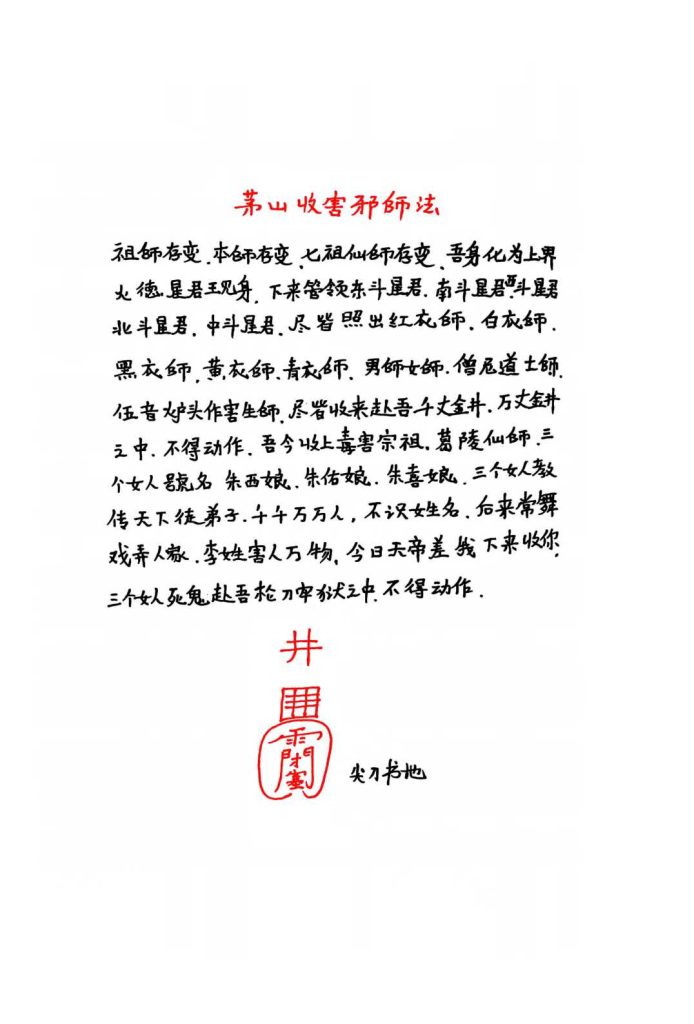 茅山收害邪師法
祖師存变.本師存变.七祖仙師存变.吾身化为上界
火德星君现身.下来管领东斗星君.南斗星君.西斗星君
北斗星君.中斗星君.尽皆照出红衣師.白衣師.
黑衣師.黄衣師.青衣師.男師女師.僧尼道士師.
伍音炉头作害生師.尽皆收来赴吾千丈金井.万丈金井
之中.不得动作.吾今收上毒害宗祖.葛陵仙師.三
个女人號名 朱西娘.朱佑娘.朱喜娘.三个女人教
传天下徒弟子.千千万万人,不识女姓名.后来常舞
戏弄人家.李姓害人万物,今日天帝差我下来收你.
三个女人死鬼赴吾枪刀牢狱之中.不得动作.
井
雨
閉
尖刀书地